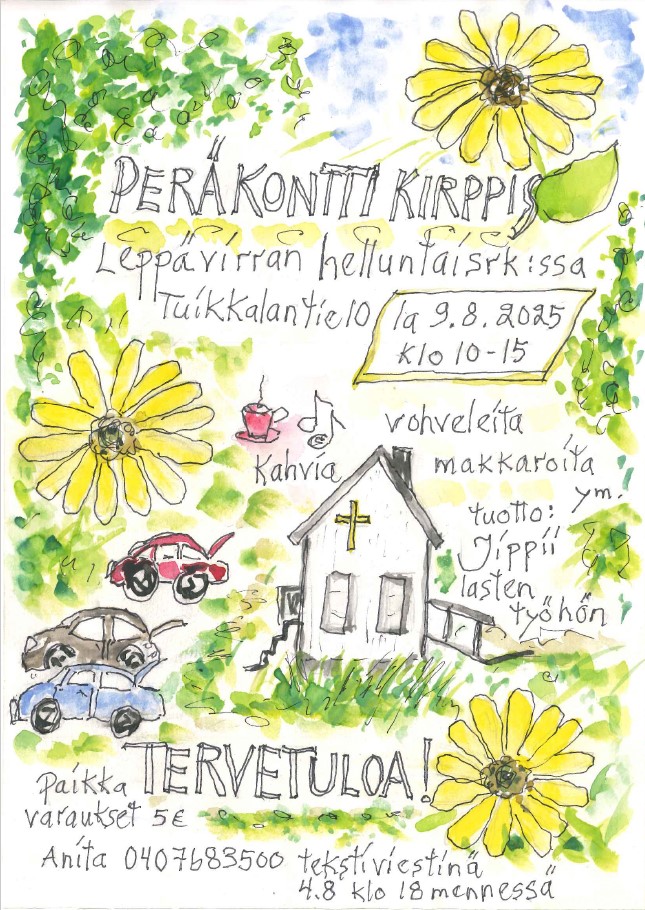 PERÄKONTTI KIRPPIS
Leppävirran helluntaisrk:ssa
Tuikkalantie 10
la 9.8.2025
klo 10-15
vohveleita
Kahvia
makkaroita
ym.
tuotto:
Jippii
lasten
työhön
TERVETULOA!
Paikka
varaukset 5€
Anita 0407683500 tekstiviestinä
4.8 klo 18 mennessä